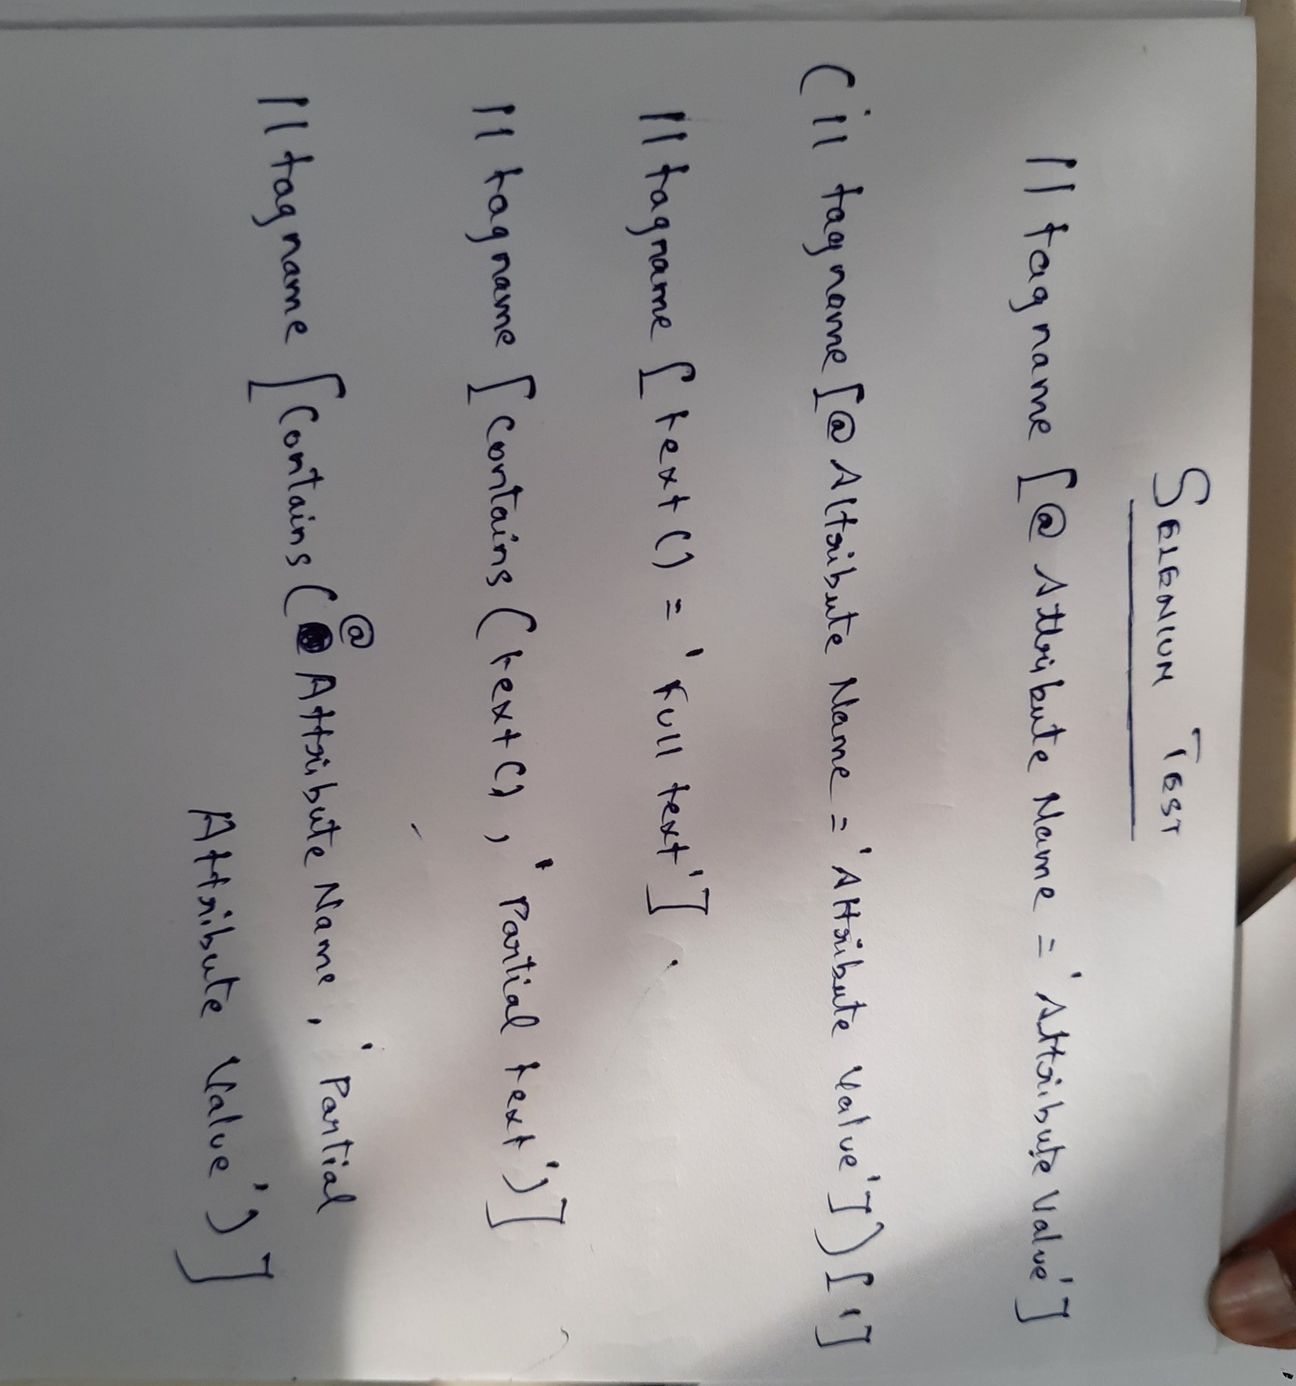 SELENIUM TEST
//tagname[@Attribute Name = 'Attribute Value']
(//tagname[@Attribute Name = 'Attribute Value'])[1]
//tagname[text() = 'Full text'].
//tagname[Contains(text(), 'Partial text')]
//tagname[Contains(@Attribute Name, 'Partial
Attribute Value')]